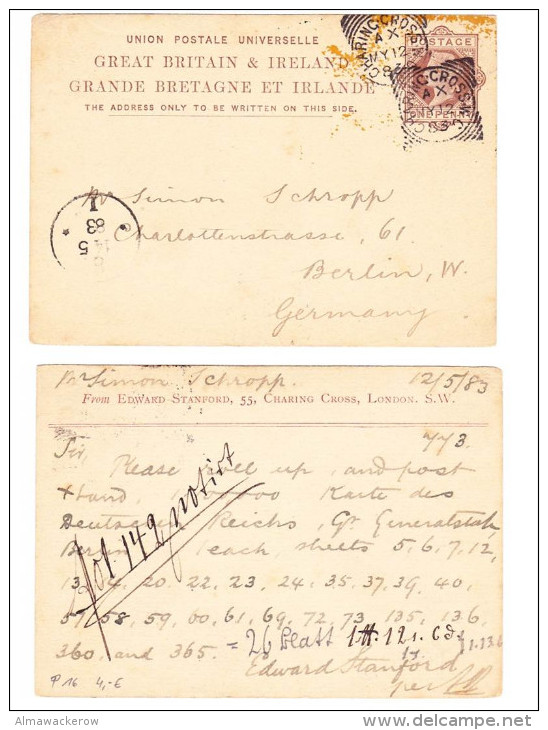 UNION POSTALE UNIVERSELLE
GREAT BRITAIN & IRELAND
GRANDE BRETAGNE ET IRLANDE
THE ADDRESS ONLY TO BE WRITTEN ON THIS SIDE.
CHARING·CROSS
AX
MY 12
83
POSTAGE
ONE PENNY
CHARING·CROSS
AX
MY 12
83
14 5
83
Mr Simon Schropp
Charlottenstrasse, 61.
Berlin, W.
Germany.
Mr Simon Schropp. 12/5/83
From EDWARD STANFORD, 55, CHARING CROSS, LONDON. S.W.
Sir, 773.
Please roll up, and post
Karte des
Deutschen Reichs, Gr Generalstab,
Berlin. 1 each, sheets 5, 6, 7, 12,
13, 14, 20, 22, 23, 24, 35, 37, 39, 40,
57, 58, 59, 60, 61, 69, 72, 73, 135, 136,
360, and 365. = 26 Blatt
Edward Stanford
per
142 notirt
P 16 4,-€
Almawackerow